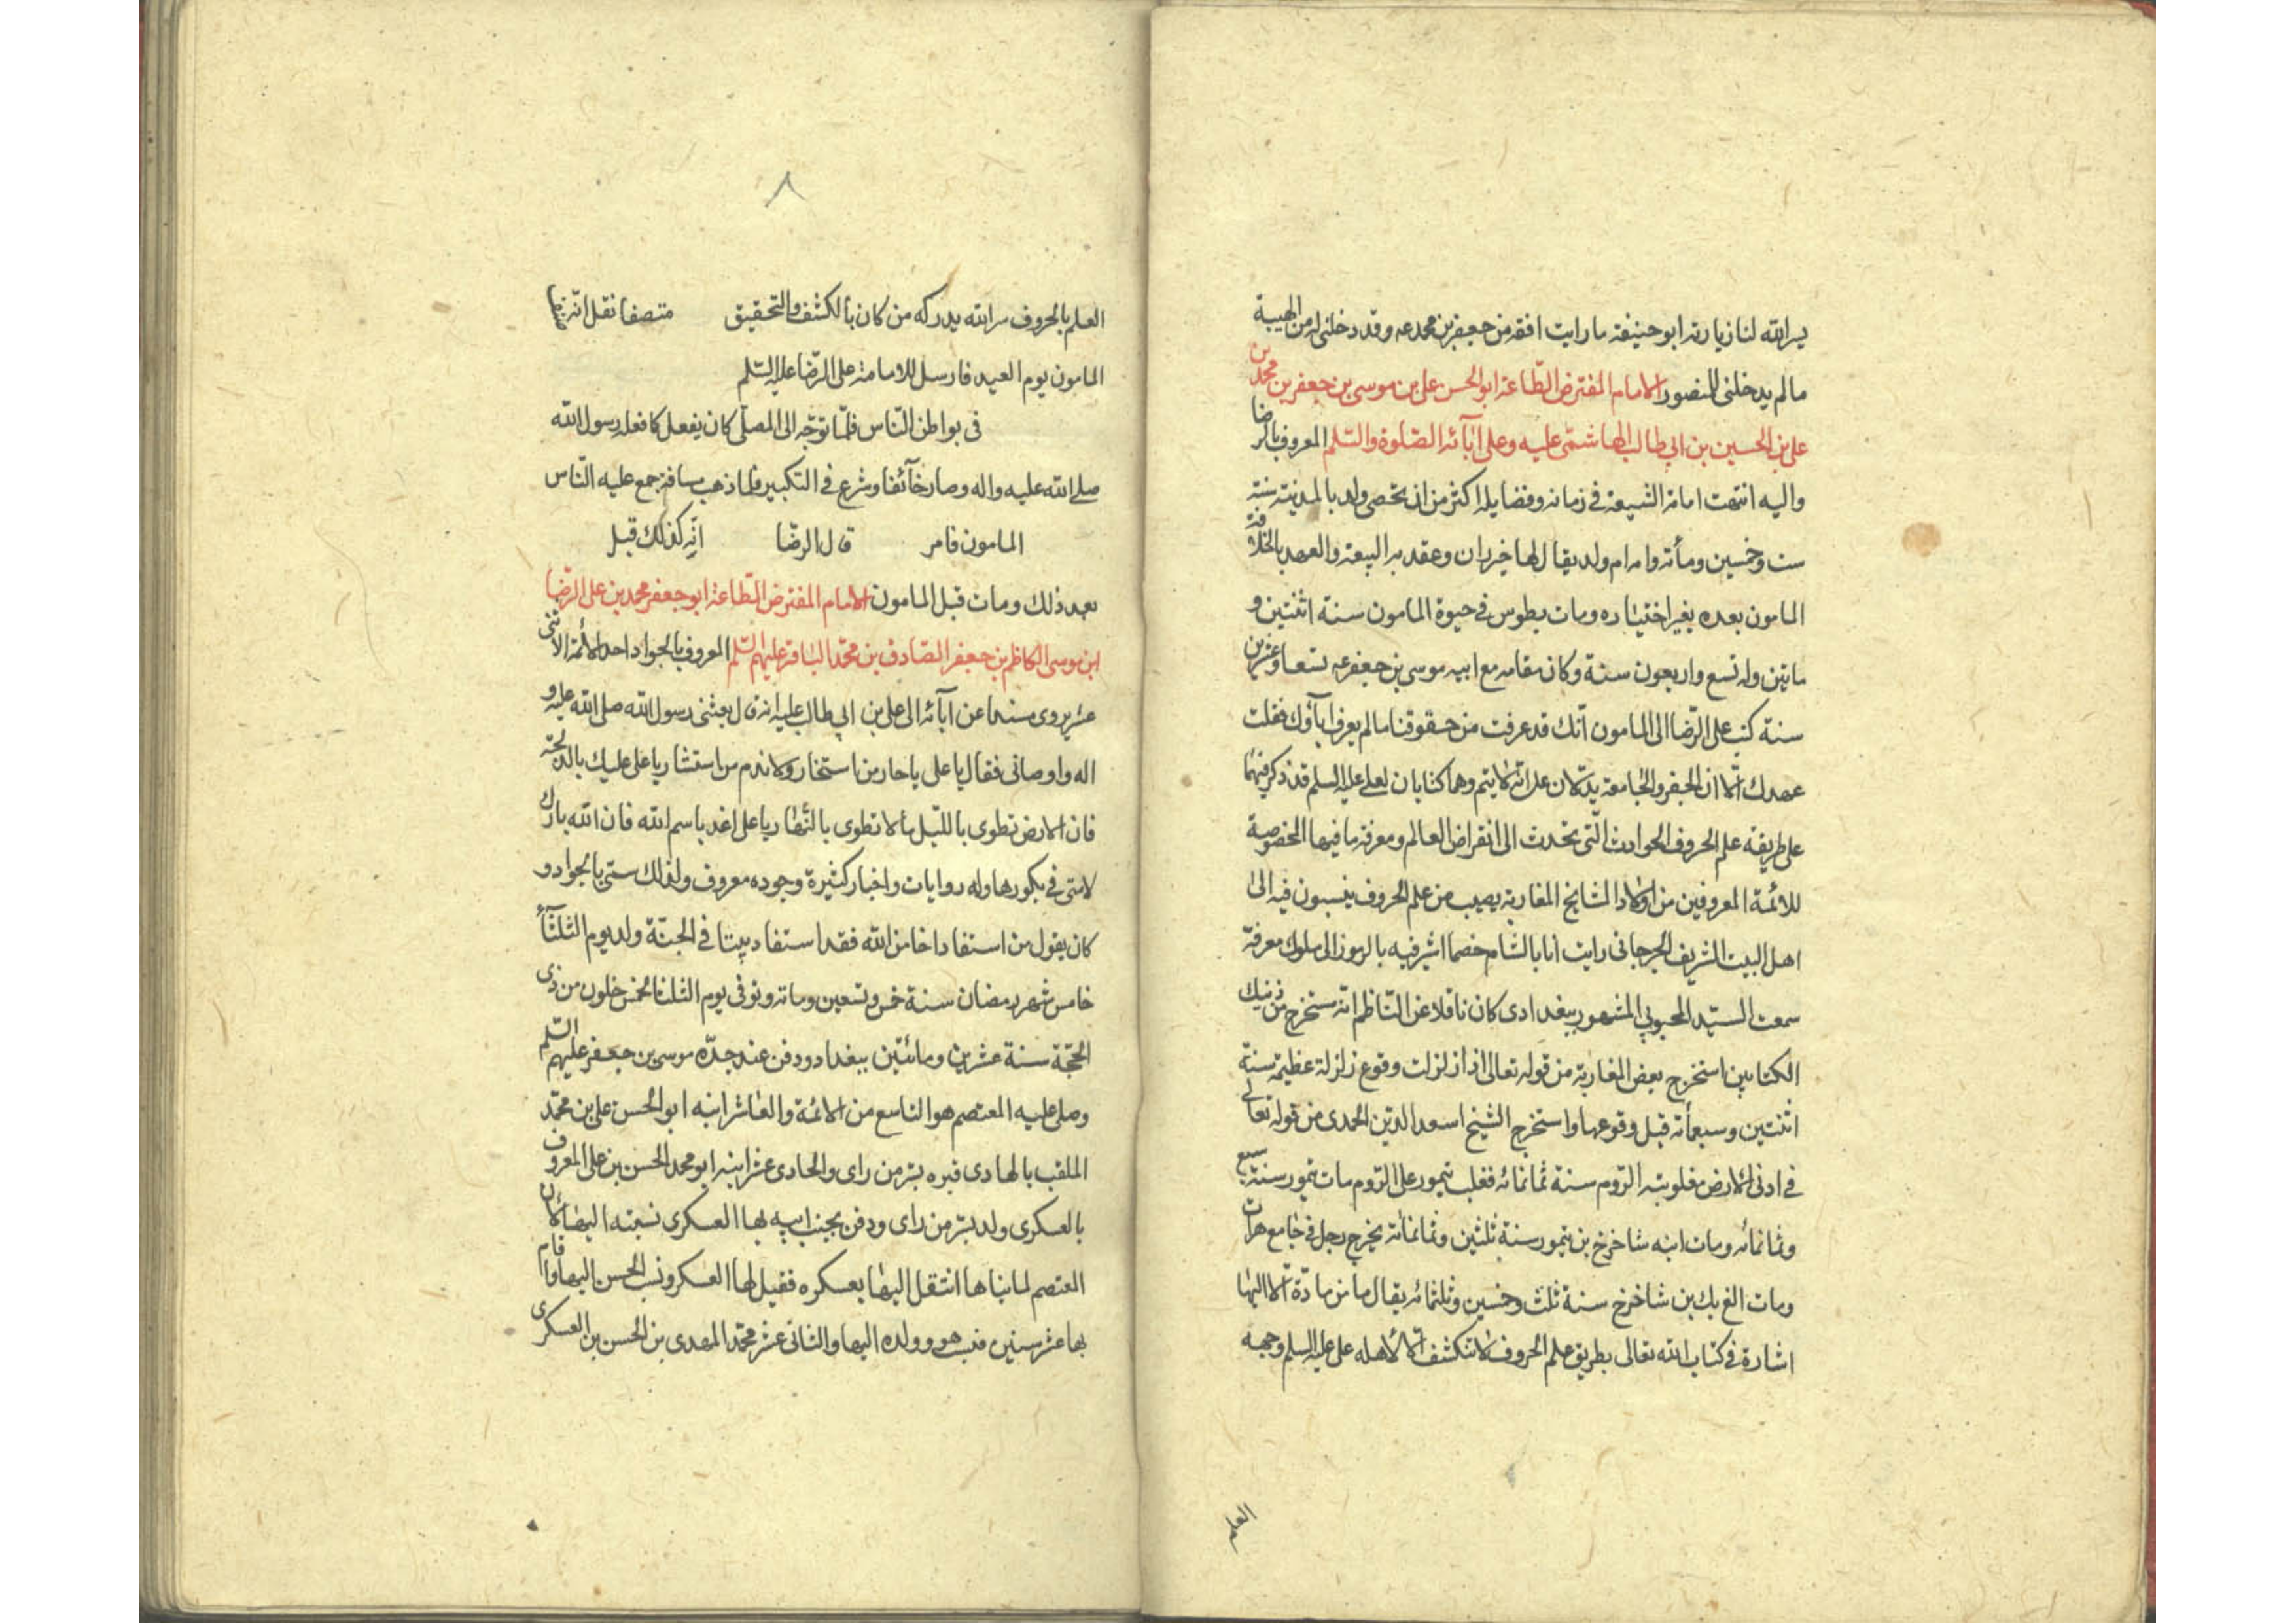 يسر الله لنا زيارته ابو حنيفة ما رايت افقه من جعفر بن محمد عه وقد دخلنى له من الهيبة
ما لم يدخلنى للمنصور الامام المفترض الطّاعة ابو الحسن على بن موسى بن جعفر بن محمد بن
على بن الحسين بن ابى طالب الهاشمّى عليه وعلى آبآئه الصّلوة والسّلم المعروف بالرضا
واليه انتهت امامة الشيعة فى زمانه وفضايله اكثر من ان تحصى ولد بالمدينة سنة
ست وخمسين ومأته وامه ام ولد يقال لها خيزران وعقد به البيعة والعهد بالخلافة
المامون بعده بغير اختياره ومات بطوس فى حيوة المامون سنة اثنتين و
ماتين وله تسع واربعون سنة وكان مقامه مع ابيه موسى بن جعفر عه تسعا وعشرين
سنة كتب على الرّضا الى المامون انّك قد عرفت من حقوقنا ما لم يعرف اباؤك فقلت
عهدك الّا ان الجفر والجامعة يدلّان على انّه لا يتم وهما كتابان لعلى عليه السلم قد ذكر فيهما
على طريقة علم الحروف الحوادث الّتى تحدث الى انقراض العالم ومعرفة ما فيها المخصوصة
للائمة المعروفين من اولاد المشايخ المغاربة يصيب من علم الحروف ينسبون فيه الى
اهل البيت الشريف الجرجانى رايت انا بالشام خصما اشير فيه بالرموز الى ملوك معرفة
سمعت السيّد المحبوبى المشهور ببغدادى كان ناقلا عن النّاظم انّه مستخرج من ذنيك
الكتابين استخرج بعض المغاربة من قوله تعالى اذا زلزلت وقوع زلزلة عظيمة سنة
اثنتين وسبعمأته قبل وقوعها واستخرج الشيخ اسعد الدّين الحمدى من قوله تعالى
فى ادنى الارض مغلوبية الرّوم سنة ثمانمائه فغلب تيمور على الرّوم مات تيمور سنة سبع
وثمانمائه ومات ابنه شاخرخ بن تيمور سنة ثلثين وثمانمائه يخرج رجل فى جامع هرات
ومات الغ بك بن شاخرخ سنة ثلث وخمسين وثلثمائه يقال ما من مادّة الّا اليها
اشارة فى كتاب الله تعالى بطريق علم الحروف لا تنكشف الّا لاهله على عليه السلم وجهه
العلم
٨
العلم بالحروف سر الله يدركه من كان بالكشف والتحقيق متصفا نقل انّه
المامون يوم العيد فارسل للامامة على الرّضا عليه السّلم
فى بواطن النّاس فلمّا توجّه الى المصلّى كان يفعل كما فعله رسول الله
صلى الله عليه واله وصار خآئفا وشرع فى التكبير فلما ذهب مسافة جمع عليه النّاس
المامون فامر قال الرضّا انّه كذلك قبل
بعد ذلك ومات قبل المامون الامام المفترض الطّاعة ابو جعفر محمد بن على الرّضا
ابن موسى الكاظم بن جعفر الصّادق بن محمّد الباقر عليهم السّلم المعروف بالجواد احد الائمة الاثنى
عشر يروى مسندا عن آبآئه الى على بن ابى طالب عليه انه قال بعثنى رسول الله صلى الله عليه و
اله واوصانى فقال يا على يا حار من استخار ولا ندم من استشار يا على عليك بالدلجة
فان الارض تطوى بالليّل ما لا تطوى بالنّهار يا على اغد باسم الله فان الله بارك
لامتى فى بكورها وله روايات واخبار كثيرة وجوده معروف ولذلك سمّى بالجواد و
كان يقول من استفاد اخا من الله فقد استفاد بيتا فى الجنّة ولد يوم الثلثآء
خامس شهر رمضان سنة خمس وتسعين ومائه وتوفى يوم الثلثا لخمس خلون من ذى
الحجّة سنة عشرين ومائتين ببغداد ودفن عند جدّه موسى بن جعفر عليهم السّلم
وصلى عليه المعتصم هو التاسع من الائمة والعاشر ابنه ابو الحسن على بن محمّد
الملقب بالهادى قبره بسّر من راى والحادى عشر ابنه ابو محمد الحسن بن على المعروف
بالعسكرى ولد بسّر من راى ودفن بجنب ابيه بها العسكرى نسبته اليها لان
المعتصم لما بناها انتقل اليها بعسكره فقيل لها العسكر ونسب الحسن اليها واقام
بها عشر سنين فنسب هو وولده اليها والثانى عشر محمّد المهدى بن الحسن بن العسكرى